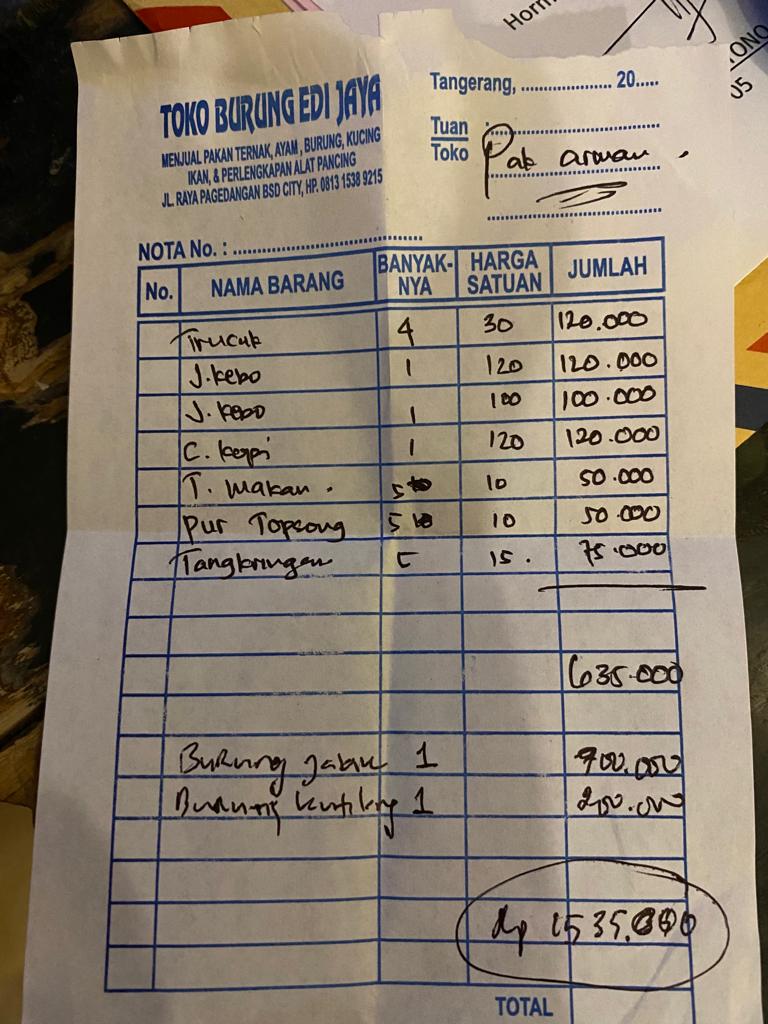 Horm
ONO
05
TOKO BURUNG EDI JAYA
MENJUAL PAKAN TERNAK, AYAM, BURUNG, KUCING
IKAN, & PERLENGKAPAN ALAT PANCING
JL. RAYA PAGEDANGAN BSD CITY, HP. 0813 1538 9215
Tangerang, .................... 20.....
Tuan
Toko
Pak arman.
NOTA No. : ........................................
No. NAMA BARANG BANYAK-NYA HARGA SATUAN JUMLAH
Trucuk 4 30 120.000
J. kebo 1 120 120.000
J. kebo 1 100 100.000
C. 1 120 120.000
T. Makan. 5 10 50.000
Pur Topsong 5 10 50.000
Tangkringan 5 15. 75.000
635.000
Burung 1 700.000
Burung 1 200.000
Rp 1535.000
TOTAL